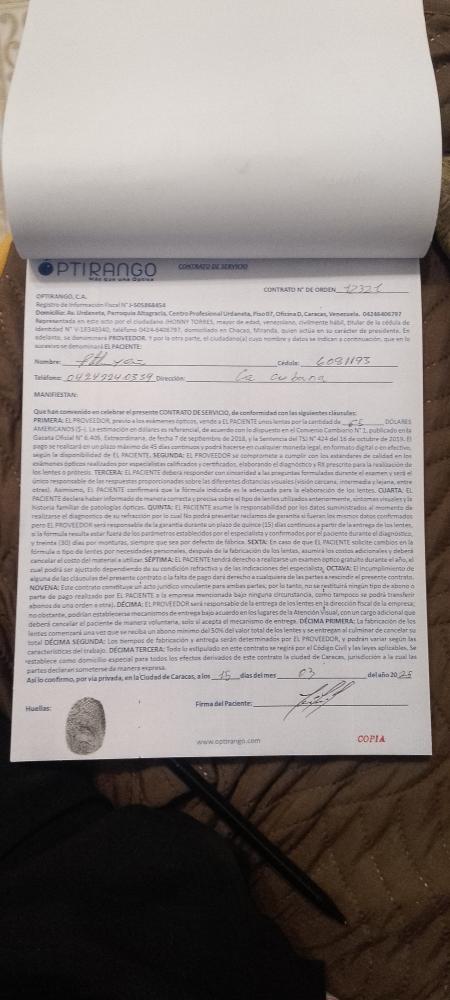 OPTIRANGO
Más que una Óptica
CONTRATO DE SERVICIO
CONTRATO N° DE ORDEN 12321
OPTIRANGO, C.A.
Registro de Información Fiscal N° J-505868454
Domicilio: Av. Urdaneta, Parroquia Altagracia, Centro Profesional Urdaneta, Piso 07, Oficina D, Caracas, Venezuela. 04246406797
Representada en este acto por el ciudadano JHONNY TORRES, mayor de edad, venezolano, civilmente hábil, titular de la cédula de
identidad N° V-18348340, teléfono 0424-6406797, domiciliado en Chacao, Miranda, quien actúa en su carácter de presidente. En
adelante, se denominará PROVEEDOR. Y por la otra parte, el ciudadano(a) cuyo nombre y datos se indican a continuación, que en lo
sucesivo se denominará EL PACIENTE:
Nombre: Cédula: 6081193
Teléfono: 04249240359 Dirección: La cubana
MANIFIESTAN:
Que han convenido en celebrar el presente CONTRATO DE SERVICIO, de conformidad con las siguientes cláusulas:
PRIMERA: EL PROVEEDOR, previo a los exámenes ópticos, vende a EL PACIENTE unos lentes por la cantidad de 65 DÓLARES
AMERICANOS ($-). La estimación en dólares es referencial, de acuerdo con lo dispuesto en el Convenio Cambiario N° 1, publicado en la
Gaceta Oficial N° 6.405, Extraordinaria, de fecha 7 de septiembre de 2018, y la Sentencia del TSJ N° 424 del 16 de octubre de 2019. El
pago se realizará en un plazo máximo de 45 días continuos y podrá hacerse en cualquier moneda legal, en formato digital o en efectivo,
según la disponibilidad de EL PACIENTE. SEGUNDA: EL PROVEEDOR se compromete a cumplir con los estándares de calidad en los
exámenes ópticos realizados por especialistas calificados y certificados, elaborando el diagnóstico y RX prescrito para la realización de
los lentes o prótesis. TERCERA: EL PACIENTE deberá responder con sinceridad a las preguntas formuladas durante el examen y será el
único responsable de las respuestas proporcionadas sobre las diferentes distancias visuales (visión cercana, intermedia y lejana, entre
otras). Asimismo, EL PACIENTE confirmará que la fórmula indicada es la adecuada para la elaboración de los lentes. CUARTA: EL
PACIENTE declara haber informado de manera correcta y precisa sobre el tipo de lentes utilizados anteriormente, síntomas visuales y la
historia familiar de patologías ópticas. QUINTA: EL PACIENTE asume la responsabilidad por los datos suministrados al momento de
realizarse el diagnostico de su refracción por lo cual No podrá presentar reclamos de garantía si fueran los mismos datos confirmados
pero EL PROVEEDOR será responsable de la garantía durante un plazo de quince (15) días continuos a partir de la entrega de los lentes,
si la fórmula resulta estar fuera de los parámetros establecidos por el especialista y confirmados por el paciente durante el diagnóstico,
y treinta (30) días por monturas, siempre que sea por defecto de fábrica. SEXTA: En caso de que EL PACIENTE solicite cambios en la
fórmula o tipo de lentes por necesidades personales, después de la fabricación de los lentes, asumirá los costos adicionales y deberá
cancelar el costo del material a utilizar. SÉPTIMA: EL PACIENTE tendrá derecho a realizarse un examen óptico gratuito durante el año, el
cual podrá ser ajustado dependiendo de su condición refractiva y de las indicaciones del especialista, OCTAVA: El incumplimiento de
alguna de las cláusulas del presente contrato o la falta de pago dará derecho a cualquiera de las partes a rescindir el presente contrato.
NOVENA: Este contrato constituye un acto jurídico vinculante para ambas partes, por lo tanto, no se restituirá ningún tipo de abono o
parte de pago realizado por EL PACIENTE a la empresa mencionado bajo ninguna circunstancia, como tampoco se podrá transferir
abonos de una orden a otra). DÉCIMA: EL PROVEEDOR será responsable de la entrega de los lentes en la dirección fiscal de la empresa;
no obstante, podrían establecerse mecanismos de entrega bajo acuerdo en los lugares de la Atención Visual, con un cargo adicional que
deberá cancelar el paciente de manera voluntaria, solo si acepta el mecanismo de entrega. DÉCIMA PRIMERA: La fabricación de los
lentes comenzará una vez que se reciba un abono mínimo del 50% del valor total de los lentes y se entregan al culminar de cancelar su
total DÉCIMA SEGUNDA: Los tiempos de fabricación y entrega serán determinados por EL PROVEEDOR, y podrán variar según las
características del trabajo. DÉCIMA TERCERA: Todo lo estipulado en este contrato se regirá por el Código Civil y las leyes aplicables. Se
establece como domicilio especial para todos los efectos derivados de este contrato la ciudad de Caracas, jurisdicción a la cual las
partes declaran someterse de manera expresa.
Así lo confirmo, por vía privada, en la Ciudad de Caracas, a los 15 días del mes 03 del año 2025
Huellas: Firma del Paciente:
www.optirango.com
COPIA